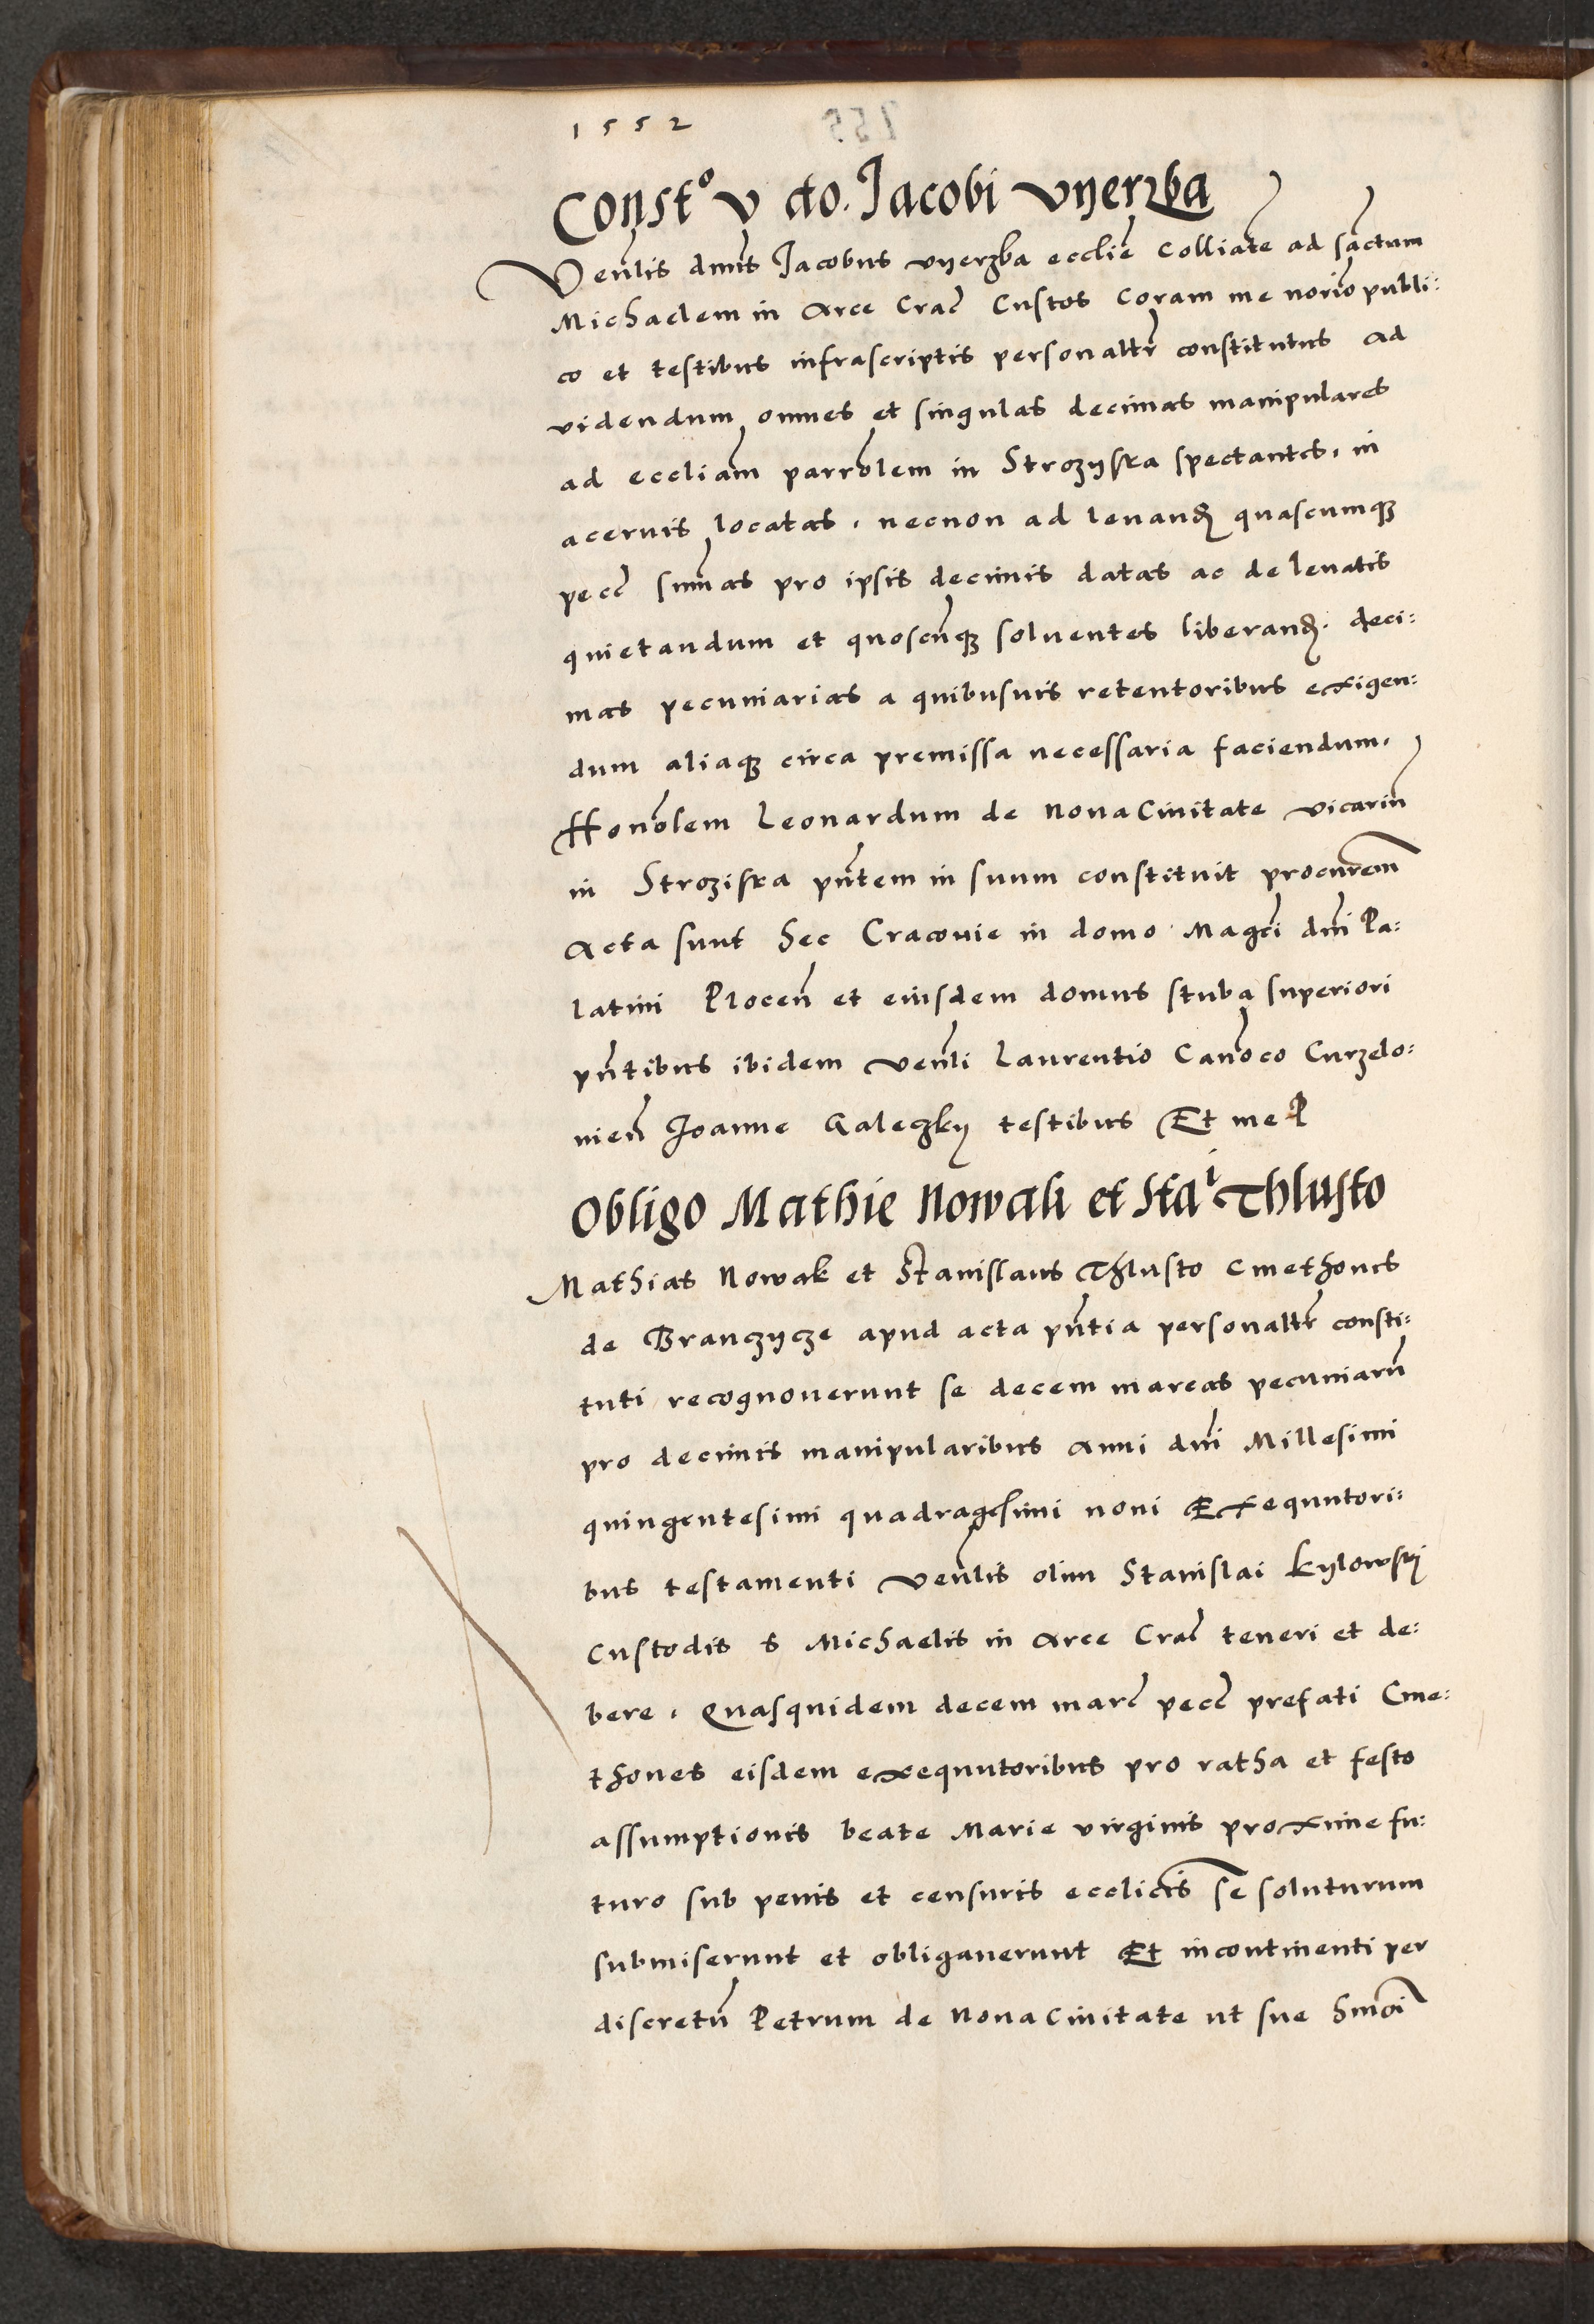 1552
Constº v do. Jacobi vyerzba
Venlis dnus Jacobus vyerzba ecclie colliate ad sactum
Michaelem in Arce Crac Custos Coram me norio publi:
co et testibus infrascriptis personaltr constitutus ad
videndum omnes et singulas decimas manipulares
ad eccliam parrolem in Strozyska spectantes, in
aceruis locatas, necnon ad leuand quascumq
pecc sumas pro ipsis decimis datas ac de leuatis
quietandum et quoscunq soluentes liberand. deci:
mas pecuniarias a quibusuis retentoribus exigen:
dum aliaq circa premissa necessaria faciendum,
Honolem Leonardum de Noua Ciuitate vicariu
in Stroziska pntem in suum constituit procurem
Acta sunt hec Cracouie in domo Magci dni Pa:
latini Plocen et eiusdem domus stuba superiori
pntibus ibidem venli Laurentio Canoco Curzelo:
uien Joanne Galeczky testibus Et me P
Obligo Mathie Nowak et Stai Thlusto
Mathias Nowak et Stanislaus Thlusto Cmethones
de Branczycze apud acta pntia personaltr consti:
tuti recognouerunt se decem marcas pecuniaru
pro decimis manipularibus Anni dni Millesimi
quingentesimi quadragesimi noni Exequutori:
bus testamenti venlis olim Stanislai Kylowsky
Custodis S Michaelis in Arce Crac teneri et de:
bere, Quasquidem decem marc pecc prefati Cme:
thones eisdem exequutoribus pro ratha et festo
assumptionis beate Marie virginis proxime fu:
turo sub penis et censuris ecclicis se soluturum
submiserunt et obligauerunt Et incontinenti per
discretu Petrum de Noua Ciuitate ut sue Smoi